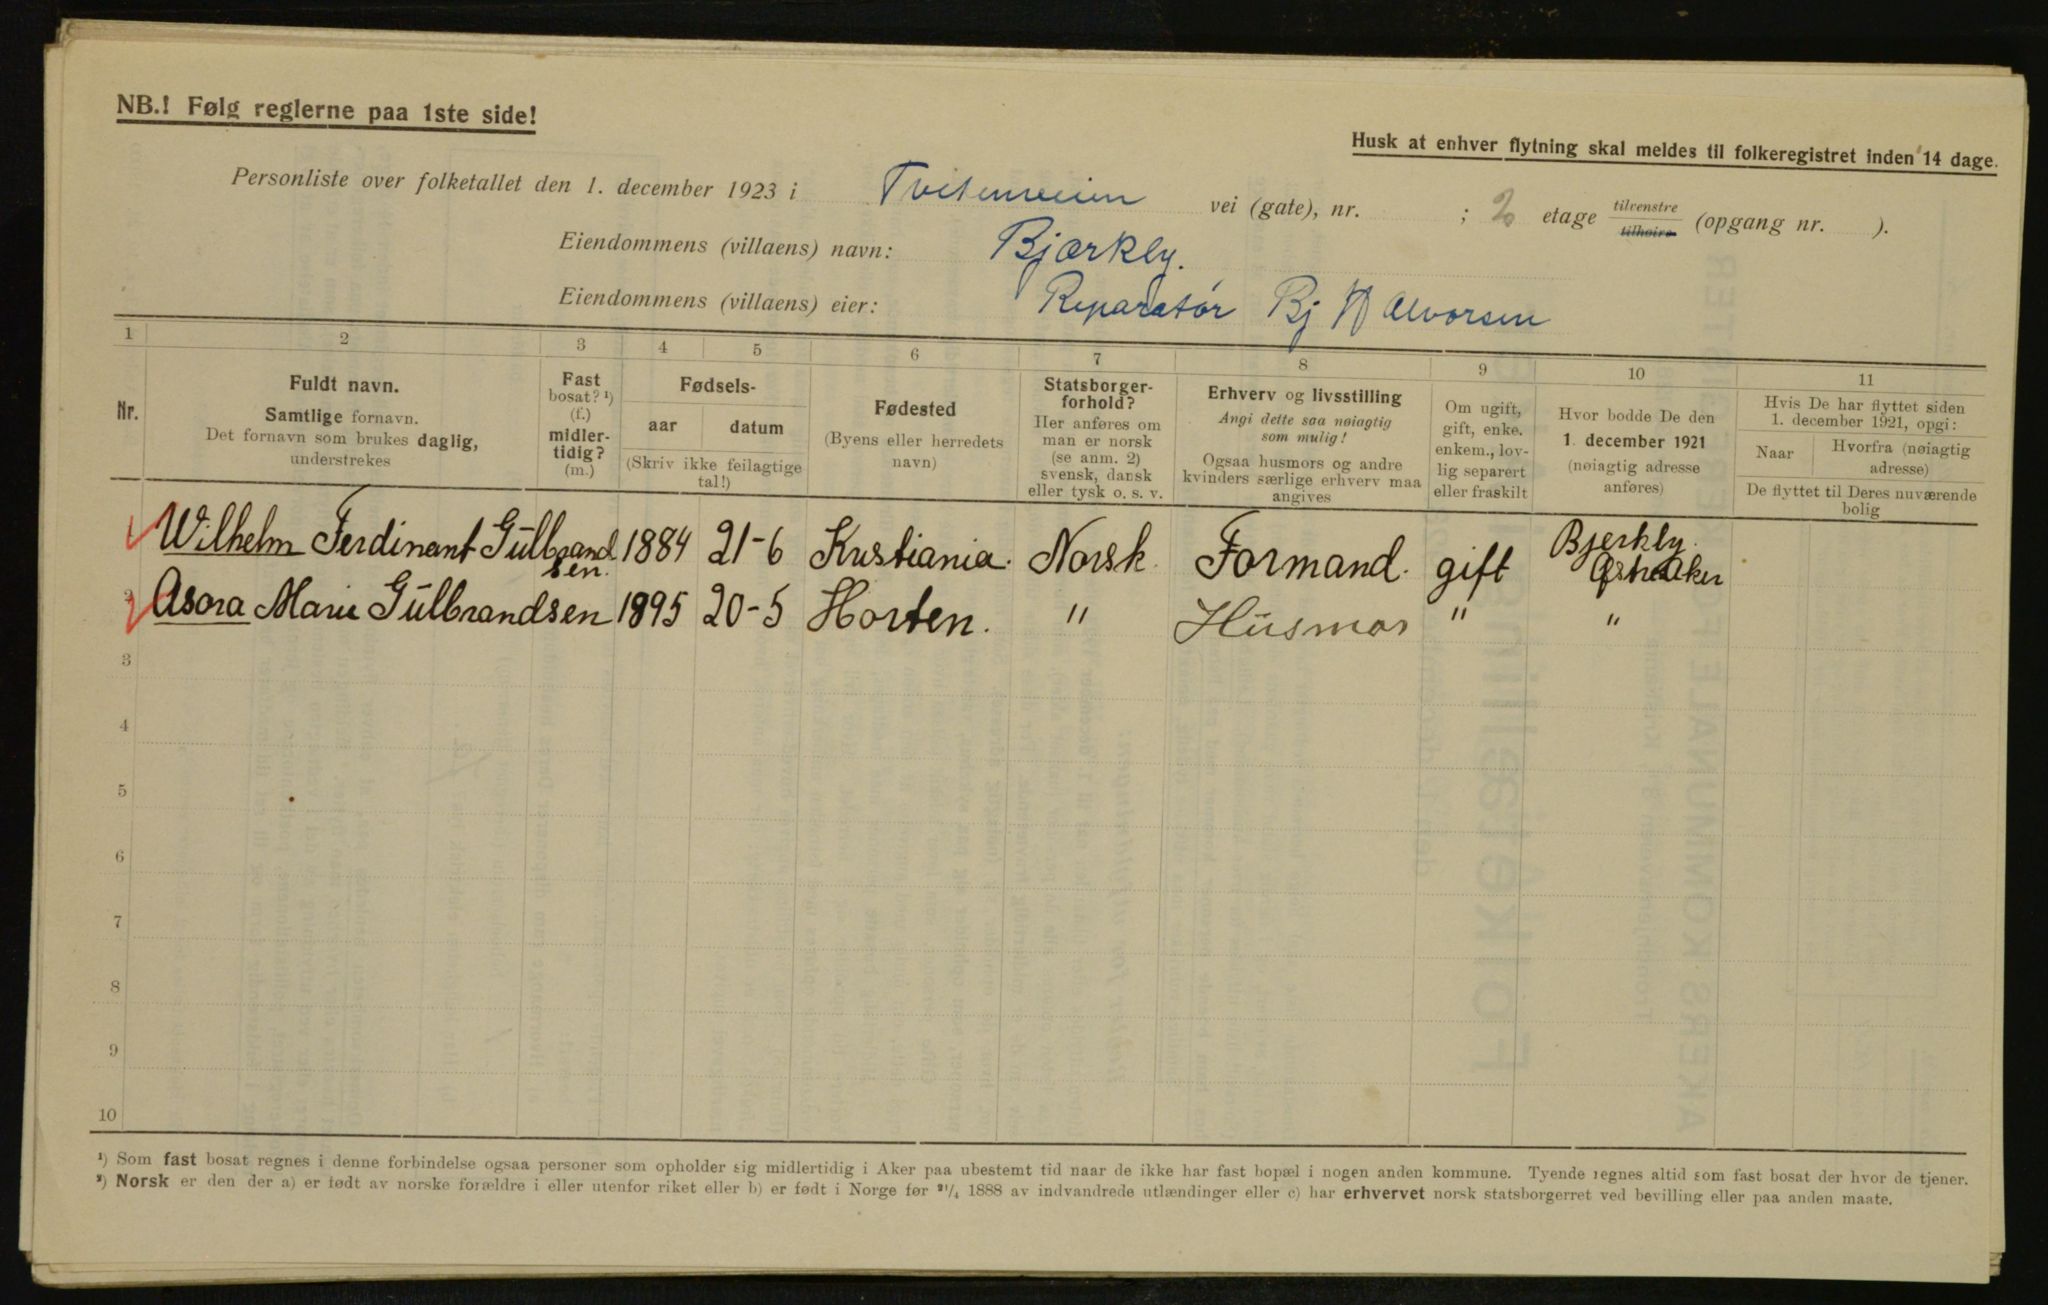 NB.! Følg reglerne paa 1ste side!
Husk at enhver flytning skal meldes til folkeregistret inden 14 dage.
Personliste over folketallet den 1. december 1923 i Tvetenveien vei (gate), nr. ; 2 etage tilvenstre tilhøire (opgang nr. ).
Eiendommens (villaens) navn: Bjørkly.
Eiendommens (villaens) eier: Reparatør Bj Halvorsen
1 2 3 4 5 6 7 8 9 10 11
Nr.
Fuldt navn.
Samtlige fornavn.
Det fornavn som brukes daglig,
understrekes
Fast
bosat? ¹)
(f.)
midler-
tidig?
(m.)
Fødsels-
aar datum
(Skriv ikke feilagtige
tal!)
Fødested
(Byens eller herredets
navn)
Statsborger-
forhold?
Her anføres om
man er norsk
(se anm. 2)
svensk, dansk
eller tysk o. s. v.
Erhverv og livsstilling
Angi dette saa nøiagtig
som mulig!
Ogsaa husmors og andre
kvinders særlige erhverv maa
angives
Om ugift,
gift, enke.
enkem., lov-
lig separert
eller fraskilt
Hvor bodde De den
1. december 1921
(nøiagtig adresse
anføres)
Hvis De har flyttet siden
1. december 1921, opgi:
Naar Hvorfra (nøiagtig
adresse)
De flyttet til Deres nuværende
bolig
Wilhelm Ferdinant Gülbrand 1884 21-6 Kristiania. Norsk. Formand. gift Bjerkly.
sen. Østre Aker
2 Asora Marie Gülbrandsen 1895 20-5 Horten. " Hüsmor " "
3
4
5
6
7
8
9
10
¹) Som fast bosat regnes i denne forbindelse ogsaa personer som opholder sig midlertidig i Aker paa ubestemt tid naar de ikke har fast bopæl i nogen anden kommune. Tyende regnes altid som fast bosat der hvor de tjener.
²) Norsk er den der a) er født av norske forældre i eller utenfor riket eller b) er født i Norge før ²¹/₄ 1888 av indvandrede utlændinger eller c) har erhvervet norsk statsborgerret ved bevilling eller paa anden maate.